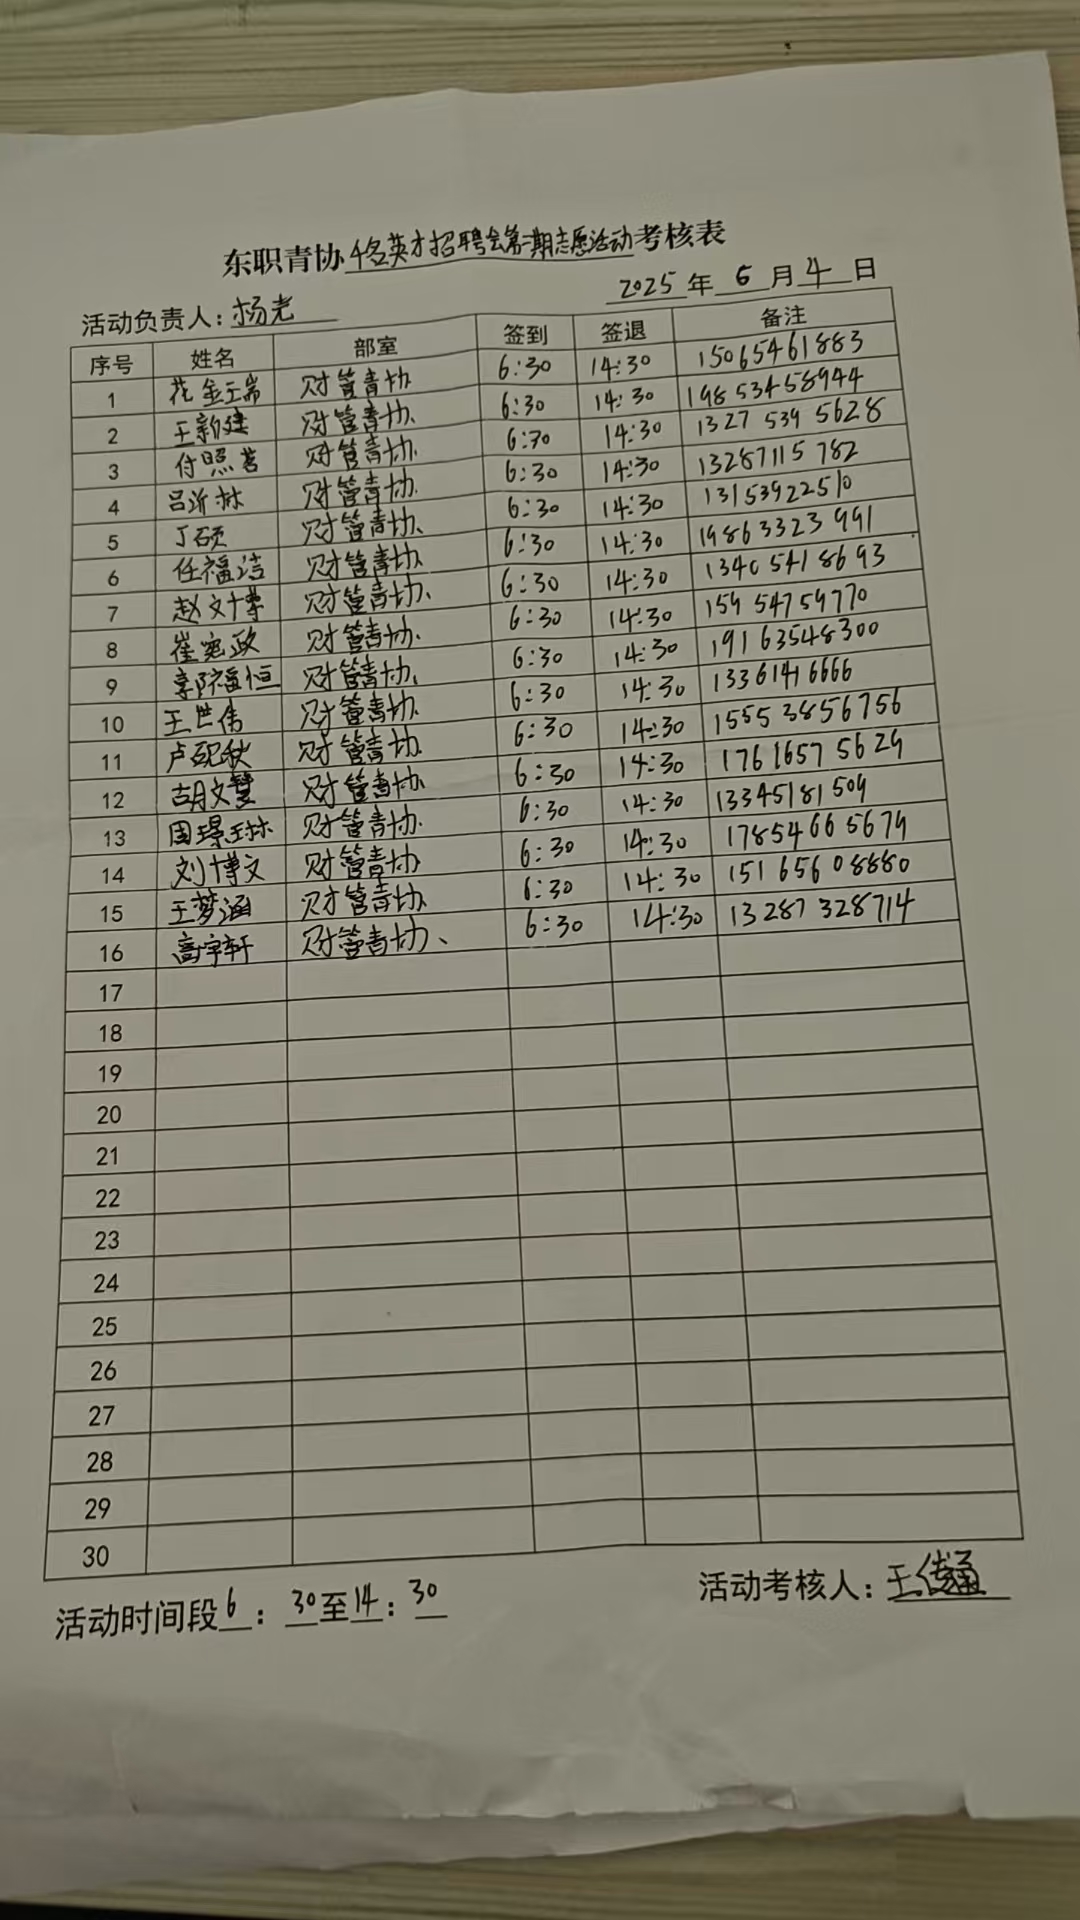 东职青协千名英才招聘会第二期志愿活动考核表
2025年6月4日
活动负责人：杨光
序号 姓名 部室 签到 签退 备注
1 花金瑞 财管青协 6:30 14:30 15065461883
2 王新建 财管青协 6:30 14:30 19853458944
3 付照茗 财管青协 6:30 14:30 1327 539 5628
4 吕沂林 财管青协 6:30 14:30 13287115 782
5 丁硕 财管青协 6:30 14:30 13153922510
6 任福洁 财管青协 6:30 14:30 19863323 991
7 赵文博 财管青协 6:30 14:30 1340 541 8693
8 崔宪政 财管青协 6:30 14:30 159 54759770
9 福恒 财管青协 6:30 14:30 191 63548300
10 王世伟 财管青协 6:30 14:30 13361416666
11 卢砚秋 财管青协 6:30 14:30 1555 3856756
12 胡文慧 财管青协 6:30 14:30 176 1657 5629
13 周璟琳 财管青协 6:30 14:30 13345181509
14 刘博文 财管青协 6:30 14:30 17854665679
15 王梦涵 财管青协 6:30 14:30 151 656 08880
16 高宇轩 财管青协、 6:30 14:30 13287328714
17
18
19
20
21
22
23
24
25
26
27
28
29
30
活动时间段6：30至14：30
活动考核人：王传通